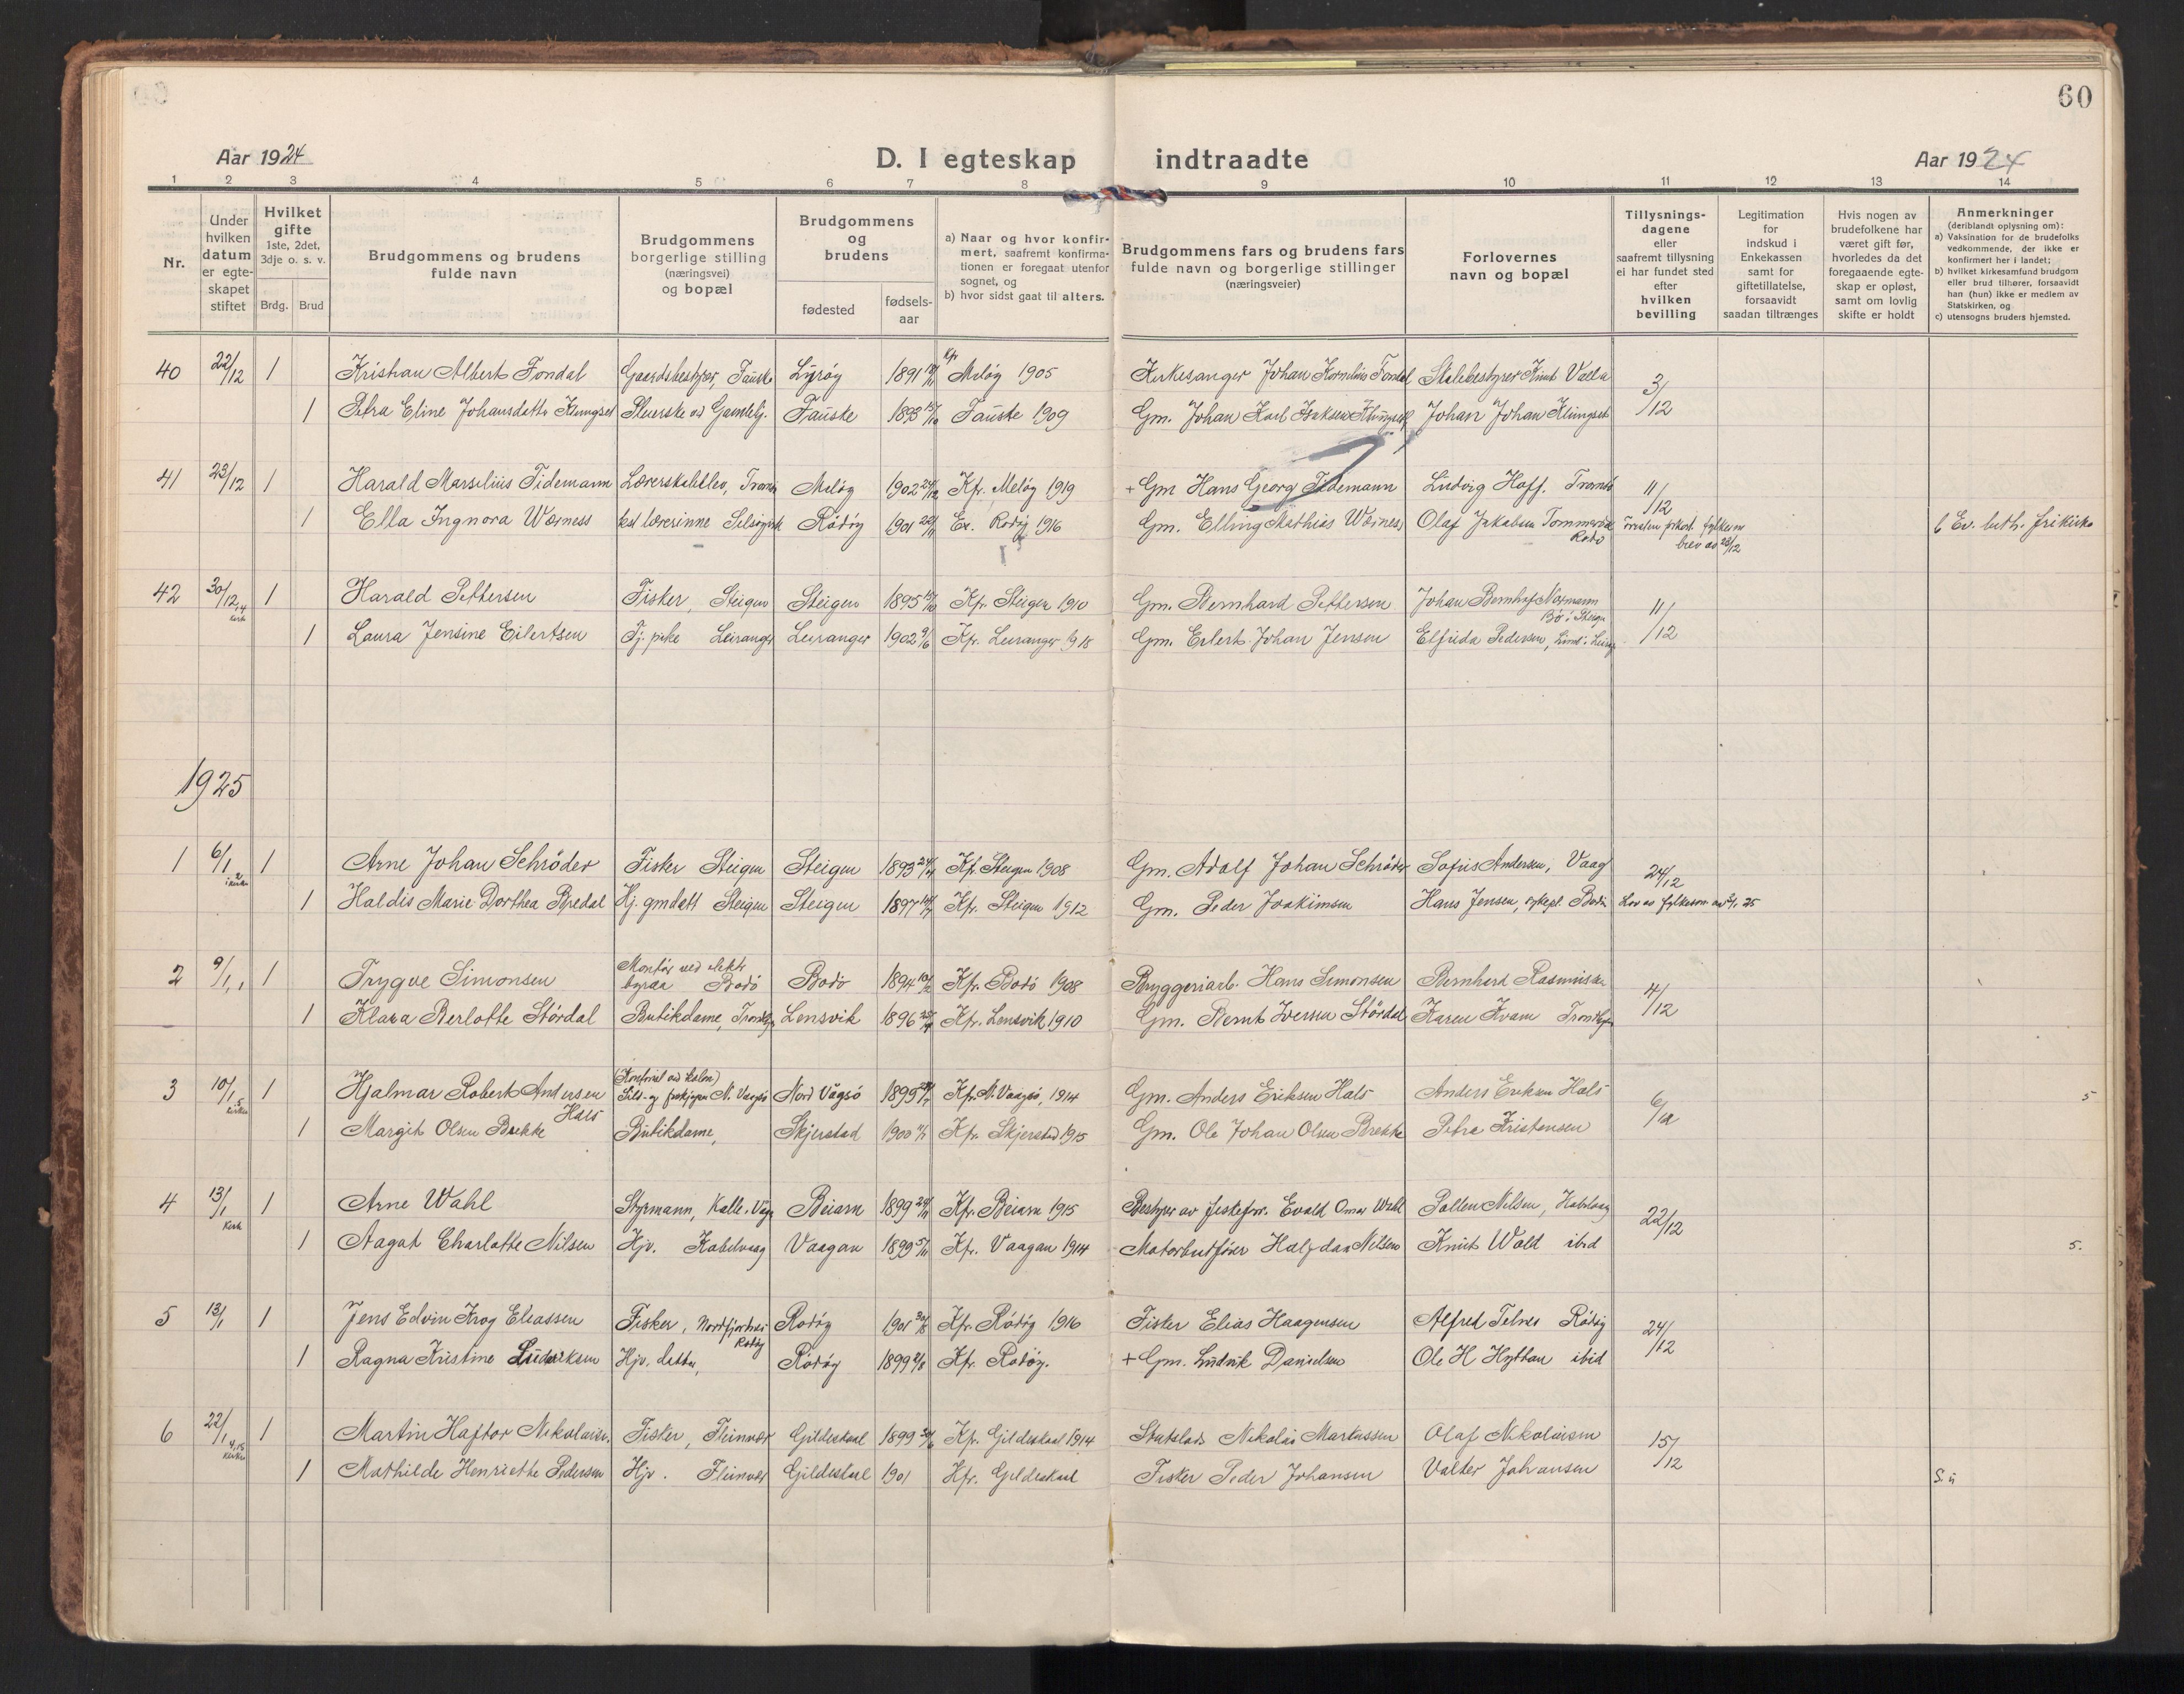 60
Aar 1924
D. I egteskap indtraadte
Aar 1924
1 2 3 4 5 6 7 8 9 10 11 12 13 14
Nr.
Under hvilken datum er egteskapet stiftet
Hvilket gifte 1ste, 2det, 3dje o. s. v.
Brdg. Brud
Brudgommens og brudens fulde navn
Brudgommens borgerlige stilling (næringsvei) og bopæl
Brudgommens og brudens
fødested
fødselsaar
a) Naar og hvor konfirmert, saafremt konfirmationen er foregaat utenfor sognet, og
b) hvor sidst gaat til alters.
Brudgommens fars og brudens fars fulde navn og borgerlige stillinger (næringsveier)
Forlovernes navn og bopæl
Tillysningsdagene eller saafremt tillysning ei har fundet sted efter hvilken bevilling
Legitimation for indskud i Enkekassen samt for giftetillatelse, forsaavidt saadan tiltrænges
Hvis nogen av brudefolkene har været gift før, hvorledes da det foregaaende egteskap er opløst, samt om lovlig skifte er holdt
Anmerkninger (deriblandt oplysning om):
a) Vaksination for de brudefolks vedkommende, der ikke er konfirmert her i landet;
b) hvilket kirkesamfund brudgom eller brud tilhører, forsaavidt han (hun) ikke er medlem av Statskirken, og
c) utensogns bruders hjemsted.
40 22/12 1 Kristian Albert Fondal Gaardsbestyrer, Fauske Lurøy 1891 Kfr. Meløy 1905 Kirkesanger Johan Kornelius Fondal 3/12
1 Petra Eline Johansdatter Klungset Fauske 1893 Fauske 1909 Gm. Johan Karl Isaksen Klungset Johan Johan Klungset
41 23/12 1 Harald Marselius Tidemann Lærerskoleelev, Tromsø Meløy 1902 Kfr. Meløy 1919 + Gm Hans Georg Tidemann Ludvig Hoff. Tromsø 11/12
1 Ella Ingnora Wærness Rødøy 1901 Ex. Rødøy 1916 Gm. Elling Mathias Wærnes Olaf Jakobsen Rødø brev av 23/12 b Ev. luth. frikirke
42 30/12 1 Harald Pettersen Fisker, Steigen Steigen 1895 Kfr. Steigen 1910 Gm. Bernhard Pettersen Johan Bernhof Normann Bø i Steigen 11/12
1 Laura Jensine Eilertsen Tj. pike Leiranger Leiranger 1902 Kfr. Leiranger 1918 Gm. Eilert Johan Jensen Elfrida Pedersen,
1925
1 6/1 1 Arne Johan Schrøder Fisker Steigen Steigen 1893 Kfr. Steigen 1908 Gm. Adolf Johan Schrøder Sofus Andersen, Vaag 24/12
1 Haldis Marie Dorthea Bredal Hj. gmdatt Steigen Steigen 1897 Kfr. Steigen 1912 Gm. Peder Joakimsen Hans Jensen, Bodin
2 9/1 1 Trygve Simonsen Montør ved elektr byraa Bodø Bodø 1894 Kfr. Bodø 1908 Bryggeriarb. Hans Simonsen Bernhard Rasmussen 4/12
1 Klara Berlotte Stördal Butikdame, Trondhj Lensvik 1896 Kfr. Lensvik 1910 Gm. Bernt Iversen Stördal Karen Kvam Trondhjem
3 10/1 1 Hjalmar Robert Andersen Hals N. Vaagsø Nord Vågsö 1899 Kfr. N. Vaagsø, 1914 Gm. Anders Eriksen Hals Anders Eriksen Hals 6/12 5
1 Margit Olsen Brekke Butikdame, Skjerstad 1900 Kfr. Skjerstad 1915 Gm. Ole Johan Olsen Brekke Petra Kristensen
4 13/1 1 Arne Wahl Styrmann, Kalle i Våga Beiarn 1899 Kfr. Beiarn 1915 Bestyrer av Evald Omar Wahl 22/12
1 Aagat Charlotte Nilsen Hjv. Kabelvaag Vaagan 1899 Kfr. Vaagan 1914 Motorbutfører Halfdan Nilsen Knut Wold ibid 5.
5 13/1 1 Jens Edvin Krog Eliassen Fisker, Nordfjordnes Rødøy Rødøy 1901 Kfr. Rødøy 1916 Fisker Elias Haagensen Alfred Telnes Rødøy 24/12
1 Ragna Kristine Ludviksen Hjv. datter, Rødøy 1899 Kfr. Rødøy. + Gm. Ludvik Danielsen Ole H Hyttan ibid
6 22/1 1 Martin Haftor Nikolaisen Fisker, Fleinvær Gildeskaal 1899 Kfr. Gildeskaal 1914 Nikolai Markussen Olaf Nikolaisen 15/12
1 Mathilde Henriette Pedersen Hjv. Fleinvær Gildeskaal 1901 Kfr. Gildeskaal Fisker Peder Johansen Valter Johansen